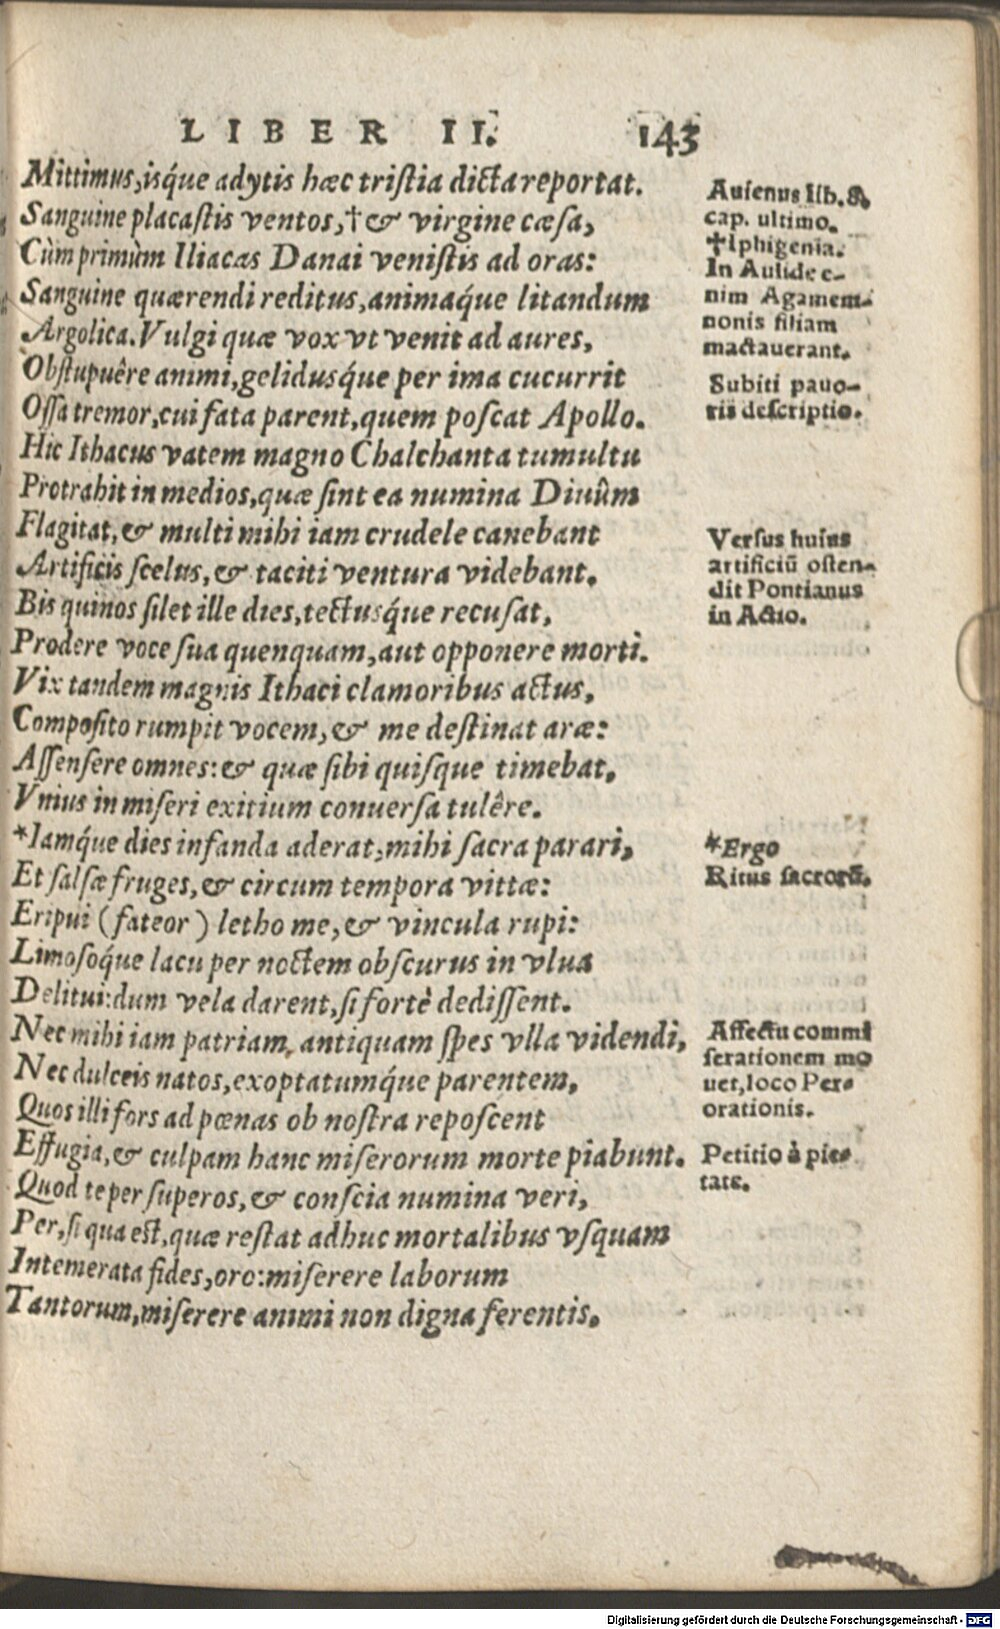 LIBER II. 143
Mittimus, isq́ue adytis hæc tristia dicta reportat.
Sanguine placastis ventos, † & virgine cæsa,
Cùm primùm Iliacas Danai venistis ad oras:
Sanguine quærendi reditus, animaq́ue litandum
Argolica. Vulgi quæ vox vt venit ad aures,
Obstupuêre animi, gelidusq́ue per ima cucurrit
Ossa tremor, cui fata parent, quem poscat Apollo.
Hic Ithacus vatem magno Chalchanta tumultu
Protrahit in medios, quæ sint ea numina Diuûm
Flagitat, & multi mihi iam crudele canebant
Artificiis scelus, & taciti ventura videbant.
Bis quinos silet ille dies, tectusq́ue recusat,
Prodere voce sua quenquam, aut opponere morti.
Vix tandem magnis Ithaci clamoribus actus,
Composito rumpit vocem, & me destinat aræ:
Assensere omnes: & quæ sibi quisque timebat,
Vnius in miseri exitium conuersa tulêre.
*Iamq́ue dies infanda aderat, mihi sacra parari,
Et salsæ fruges, & circum tempora vittæ:
Eripui (fateor) letho me, & vincula rupi:
Limosoq́ue lacu per noctem obscurus in vlua
Delitui: dum vela darent, si fortè dedissent.
Nec mihi iam patriam antiquam spes vlla videndi,
Nec dulceis natos, exoptatumq́ue parentem,
Quos illi fors ad pœnas ob nostra reposcent
Effugia, & culpam hanc miserorum morte piabunt.
Quod te per superos, & conscia numina veri,
Per, si qua est, quæ restat adhuc mortalibus vsquam
Intemerata fides, oro: miserere laborum
Tantorum, miserere animi non digna ferentis.
Auienus lib. 8.
cap. ultimo.
†Iphigenia.
In Aulide e-
nim Agamem-
nonis filiam
mactauerant.
Subiti pauo-
ris descriptio.
Versus huius
artificiū osten-
dit Pontianus
in Actio.
*Ergo
Ritus sacrorū.
Affectu commi
serationem mo
uet, loco Per-
orationis.
Petitio à pie-
tate.
Digitalisierung gefördert durch die Deutsche Forschungsgemeinschaft - DFG